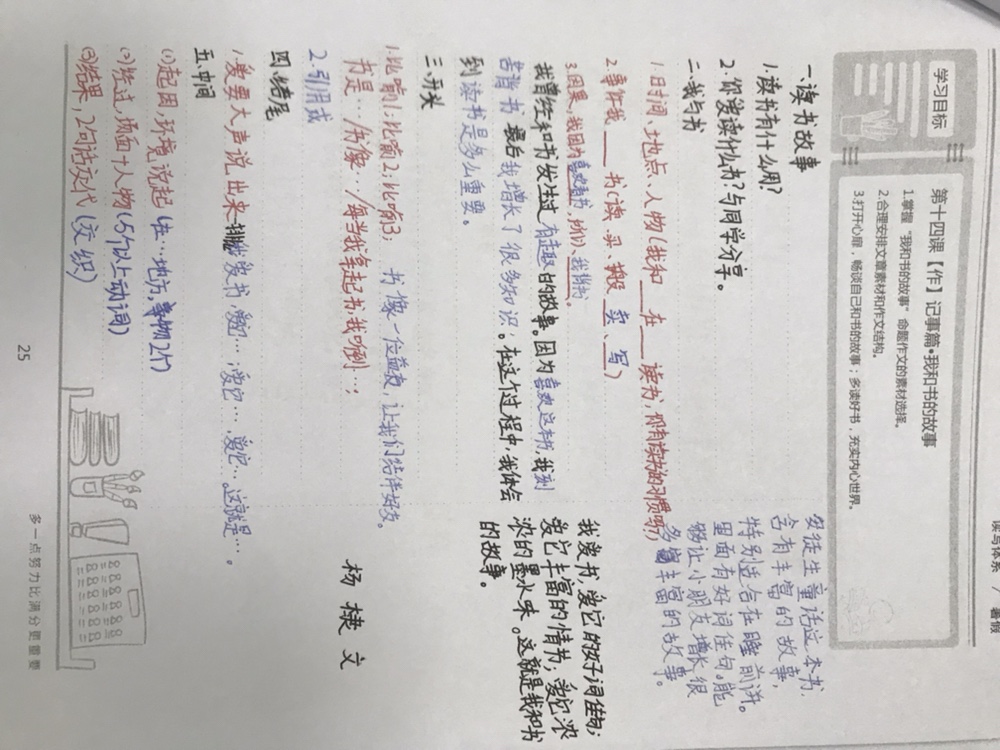 读写体系 / 暑假
学习目标
第十四课【作】记事篇·我和书的故事
1.掌握“我和书的故事”命题作文的素材选择。
2.合理安排文章素材和作文结构。
3.打开心扉，畅谈自己和书的故事；多读好书，充实内心世界。
一、读书故事
1.读书有什么用？
2.你爱读什么书？与同学分享。
安徒生童话这本书，
含有丰富的故事，
特别适合在睡前讲。
里面有好词佳句。能
够让小朋友增长很
多丰富的故事。
二、我与书
1.时间、地点、人物(我和 在 读书，你有读书的习惯吗)
2.事件我 书(读、买、搬、卖、写)
3.因果，我因为喜欢看书，所以我
我曾经和书发生过有趣的故事。因为喜欢这本书，我刻
苦背书，最后我增长了很多知识。在这个过程中，我体会
到读书是多么重要。
三、开头
1.比喻1；比喻2；比喻3； 书像一位益友，让我们结伴好友。
书是…/仿像…/每当我拿起书，我听到…；
2.引用成
四、结尾
1.爱要大声说出来 我爱书，爱它…，爱它…，爱它…。这就是…。
我爱书，爱它的好词佳句；
爱它丰富的情节；爱它浓
浓的墨水味。这就是我和书
的故事。
五、中间
(1)起因，环境说起(在…地方，事物2个)
(2)经过，场面+人物(5个以上动词)
(3)结果，2句话交代(交织)
杨棣文
25
多一点努力比满分更重要